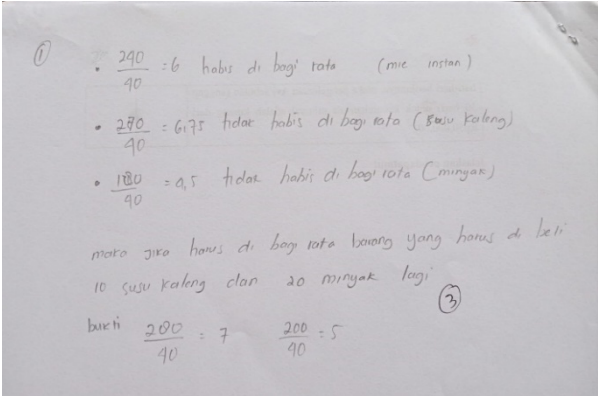 ①
• 240/40 = 6 habis di bagi rata (mie instan)
• 270/40 = 6,75 tidak habis di bagi rata (susu kaleng)
• 180/40 = 4,5 tidak habis di bagi rata (minyak)
maka jika harus di bagi rata barang yang harus di beli
10 susu kaleng dan 20 minyak lagi
③
bukti 280/40 = 7 200/40 = 5